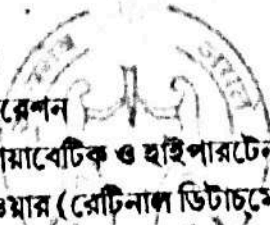 রেশন
য়াবেটিক ও হাইপারটেন
ওয়ার (রেটিনাল ডিটাচমে